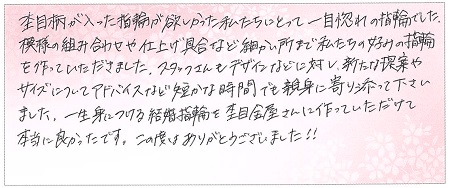 杢目柄が入った指輪が欲しかった私たちにとって一目惚れの指輪でした。
模様の組み合わせや仕上げ具合など細かい所まで私たちの好みの指輪
を作っていただきました。スタッフさんもデザインなどに対し、新たな提案や
サイズについてアドバイスなど短かな時間でも親身に寄り添って下さい
ました。一生身につける結婚指輪を杢目金屋さんに作っていただけて
本当に良かったです。この度はありがとうございました!!